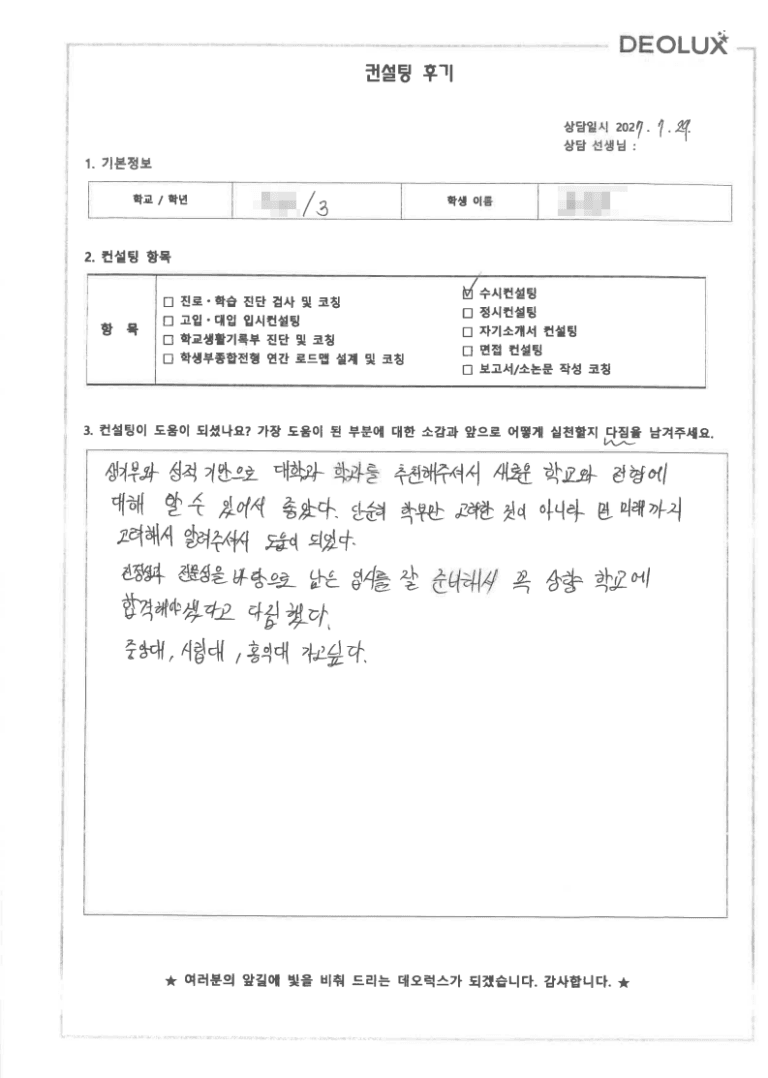 DEOLUX
컨설팅 후기
상담일시 2027. 7. 29.
상담 선생님 :
1. 기본정보
학교 / 학년 /3 학생 이름
2. 컨설팅 항목
항 목
□ 진로·학습 진단 검사 및 코칭
□ 고입·대입 입시컨설팅
□ 학교생활기록부 진단 및 코칭
□ 학생부종합전형 연간 로드맵 설계 및 코칭
☑ 수시컨설팅
□ 정시컨설팅
□ 자기소개서 컨설팅
□ 면접 컨설팅
□ 보고서/소논문 작성 코칭
3. 컨설팅이 도움이 되셨나요? 가장 도움이 된 부분에 대한 소감과 앞으로 어떻게 실천할지 다짐을 남겨주세요.
생기부와 성적 기반으로 대학과 학과를 추천해주셔서 새로운 학교와 전형에
대해 알 수 있어서 좋았다. 단순히 학부만 고려한 것이 아니라 먼 미래까지
고려해서 알려주셔서 도움이 되었다.
진정성과 전문성을 바탕으로 남은 입시를 잘 준비해서 꼭 상향 학교에
합격해야겠다고 다짐했다.
중앙대, 시립대, 홍익대 가고싶다.
★ 여러분의 앞길에 빛을 비춰 드리는 데오럭스가 되겠습니다. 감사합니다. ★